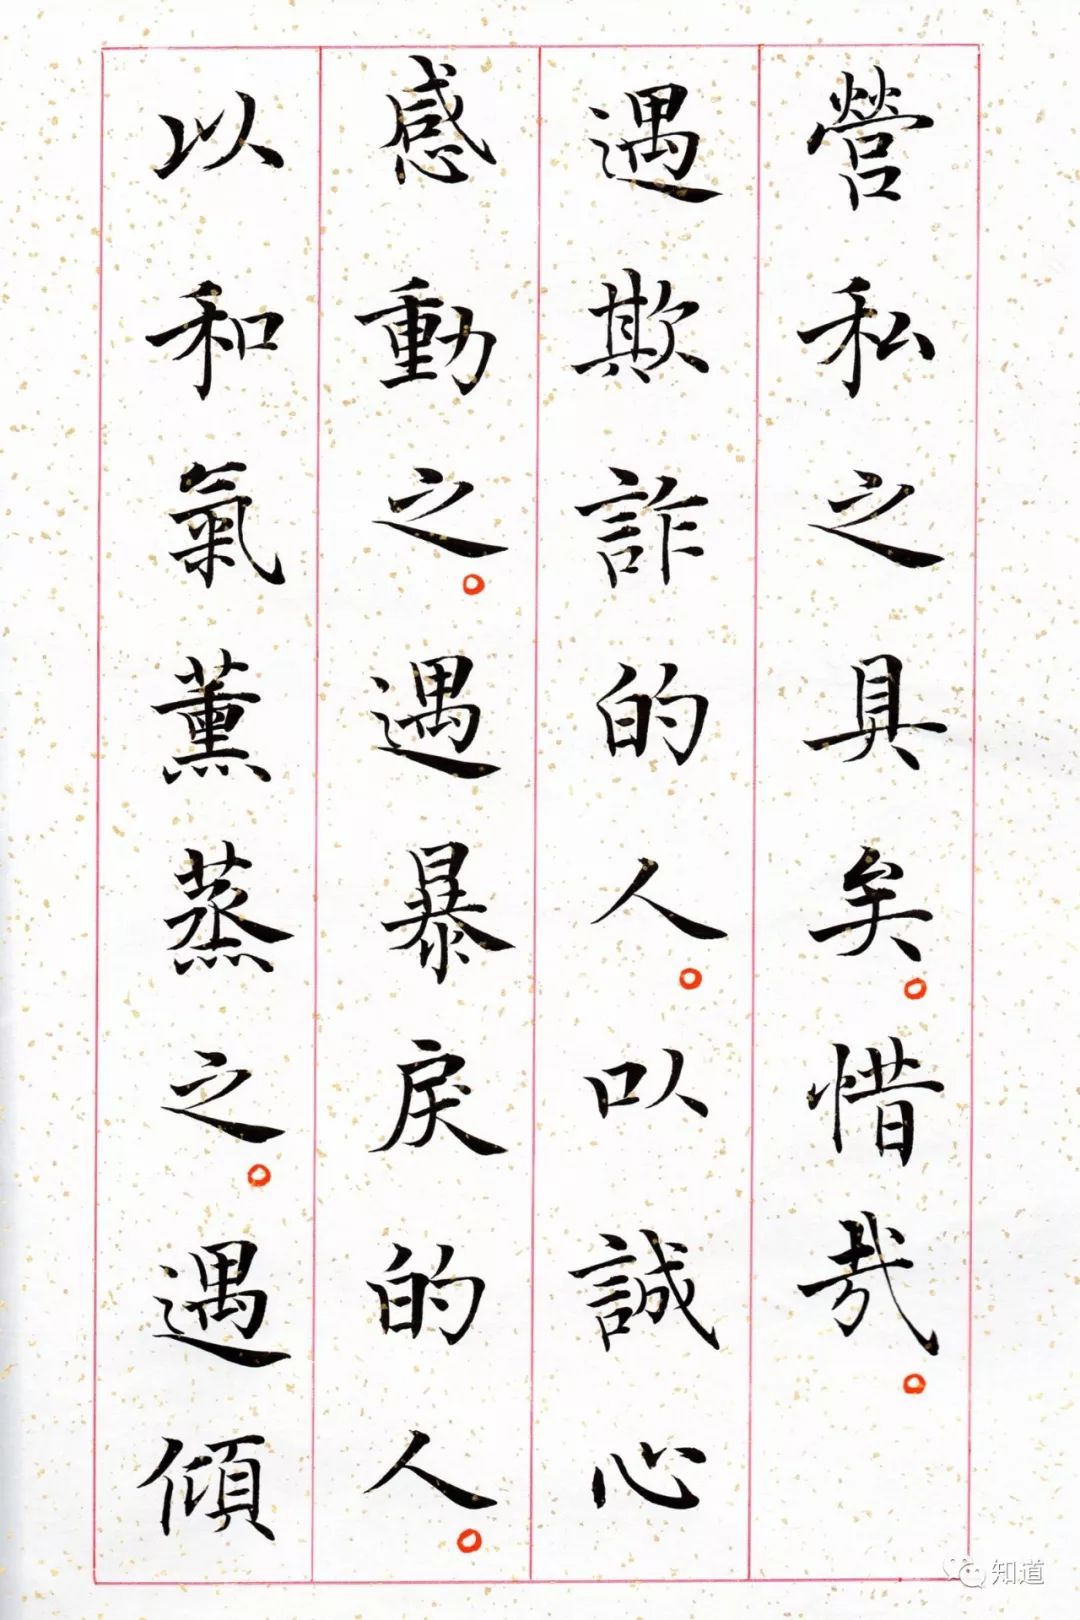 營私之具矣。惜哉。
遇欺詐的人。以誠心
感動之。遇暴戾的人。
以和氣薰蒸之。遇傾
知道